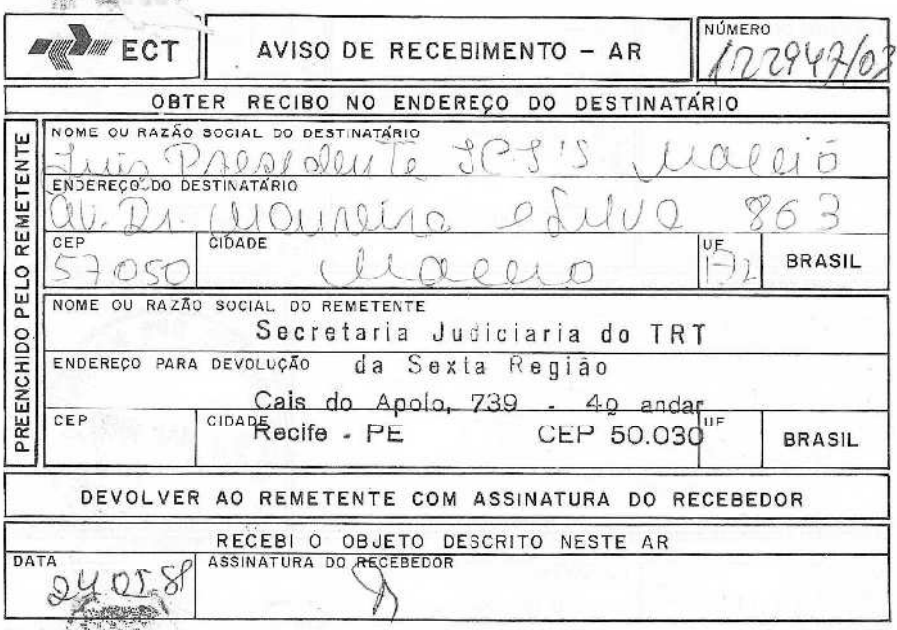 ECT
AVISO DE RECEBIMENTO – AR
NÚMERO
122947/03
OBTER RECIBO NO ENDEREÇO DO DESTINATÁRIO
PREENCHIDO PELO REMETENTE
NOME OU RAZÃO SOCIAL DO DESTINATÁRIO
Presidente JCJ'S Maceió
ENDEREÇO DO DESTINATÁRIO
Av. Dr. Moureira e Silva 863
CEP
57050
CIDADE
Maceio
UF
BRASIL
NOME OU RAZÃO SOCIAL DO REMETENTE
Secretaria Judiciaria do TRT
ENDEREÇO PARA DEVOLUÇÃO da Sexta Região
Cais do Apolo, 739 - 4º andar
CEP
CIDADE
Recife - PE CEP 50.030
UF
BRASIL
DEVOLVER AO REMETENTE COM ASSINATURA DO RECEBEDOR
RECEBI O OBJETO DESCRITO NESTE AR
DATA
ASSINATURA DO RECEBEDOR